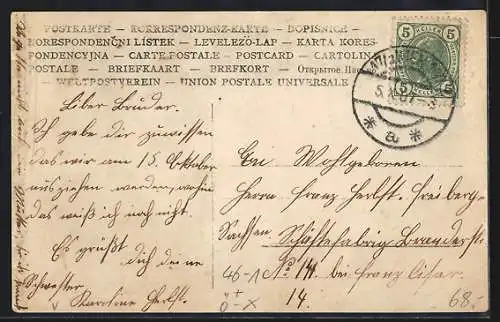 POSTKARTE — KORRESPONDENZ-KARTE — DOPISNICE —
KORESPONDENČNÍ LÍSTEK — LEVELEZŐ-LAP — KARTA KORES-
PONDENCYJNA — CARTE POSTALE — POSTCARD — CARTOLINA
POSTALE — BRIEFKAART — BREFKORT — Открытое
— WELTPOSTVEREIN — UNION POSTALE UNIVERSALE
5 5
Lieber Bruder.
Ich gebe dir zuwissen
das wir am 15. Oktober
ausziehen werden, wohin
das weiß ich noch nicht.
Es grüßt
Dich deine
Schwester
Karoline Herbst.
Euer Wohlgeboren
Herrn Franz Herbst. Freiberg-
Sachsen. Schäftefabrig
No 14 bei Franz
14.
68.-